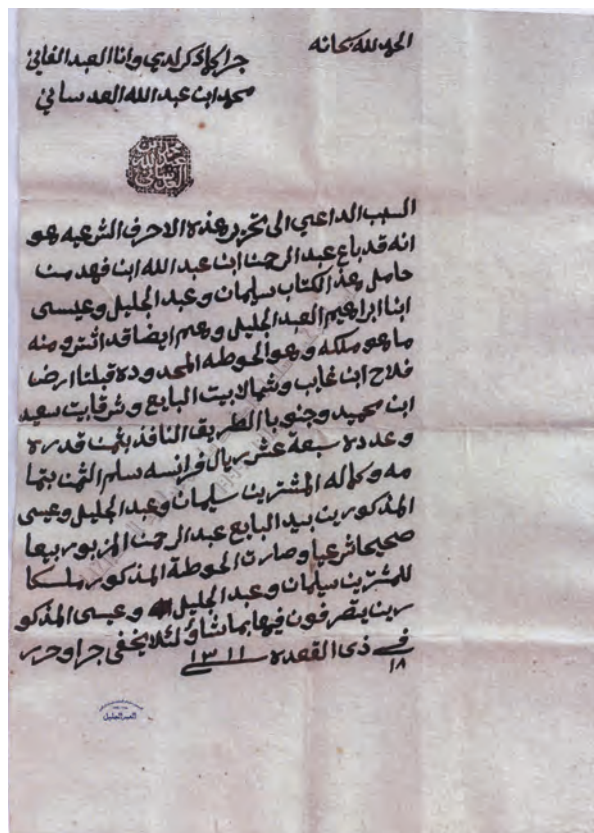 الحمد لله سبحانه
جرا كما ذكر لدي وانا العبد الفاني
محمد ابن عبد الله العدساني
السبب الداعي الى تحرير هذه الاحرف الشرعيه هو
انه قد باع عبد الرحمن ابن عبد الله ابن فهد من
حامل هذا الكتاب سليمان وعبد الجليل وعيسى
ابنا ابراهيم العبد الجليل وهم ايضا قد اشترو منه
ما هو ملكه وهو الحوطه المحدوده قبلتا ارض
فلاح ابن غايب وشمالا بيت البايع وشرقا بيت سعيد
ابن محميد وجنوبا الطريق النافذ بثمن قدره
وعدده سبعة عشر ريال فرانسه سلم الثمن بتما
مه وكماله المشترين سليمان وعبد الجليل وعيسى
المذكورين بيد البايع عبد الرحمن المزبور بيعا
صحيحا شرعيا وصارت الحوطة المذكور ملكا
للمشترين سليمان وعبد الجليل وعيسى المذكو
رين يتصرفون فيها بما شاؤ لئلا يخفى جرا وحرر
في ١٨ ذي القعده سنة ١٣١١
العبدالجليل